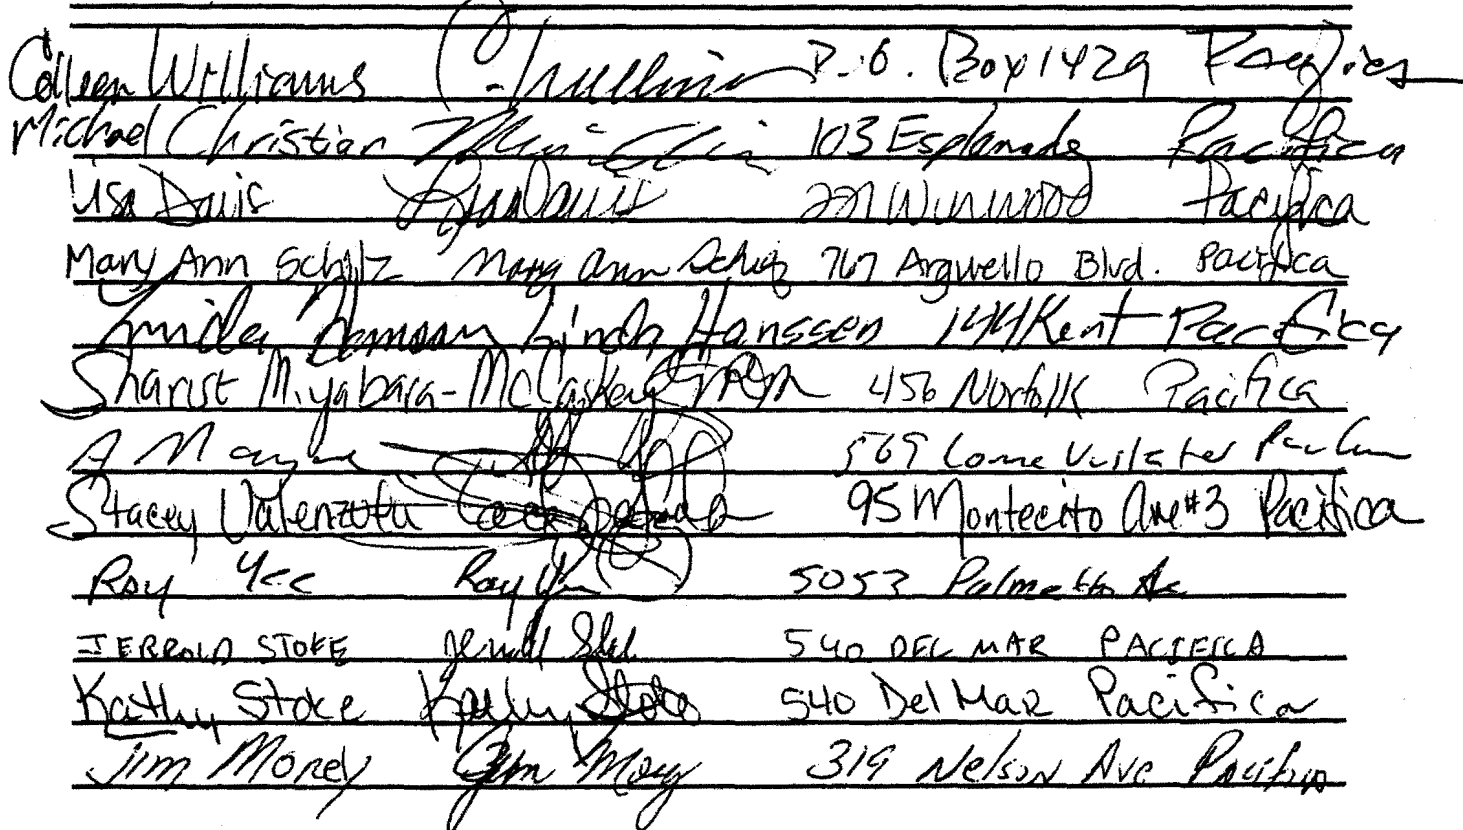 Colleen Williams P.O. Box 1429 Pacifica
Michael Christian 103 Esplanade Pacifica
Lisa Davis Lisa Davis 221 Wynwood Pacifica
Mary Ann Schitz Mary Ann Schitz 767 Arguello Blvd. Pacifica
Linda Hanssen Linda Hanssen 144 Kent Pacifica
Miyabara-McCaskey 456 Norfolk Pacifica
A 569
Stacey Valenzuela 95 Montecito Ave #3 Pacifica
Roy Yee Roy Yee 5053 Palmetto Ave
JERROLD STOKE Jerrold 540 DEL MAR PACIFICA
Kathy Stoke Kathy Stoke 540 Del Mar Pacifica
Jim Morey Jim Morey 319 Nelson Ave Pacifica